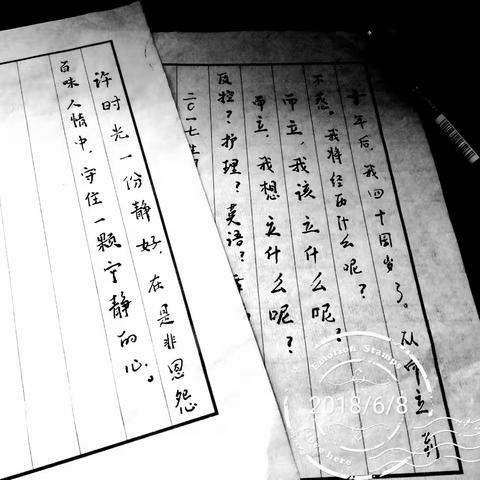 十年后，我四十周岁了。从而立到
不惑，我将经历什么呢？
而立，我该立什么呢？
而立，我想立什么呢？
反控？护理？英语？
二〇一七
许时光一份静好，在是非恩怨
百味人情中，守住一颗宁静的心。
Emotion Stamps
2018/6/8
here